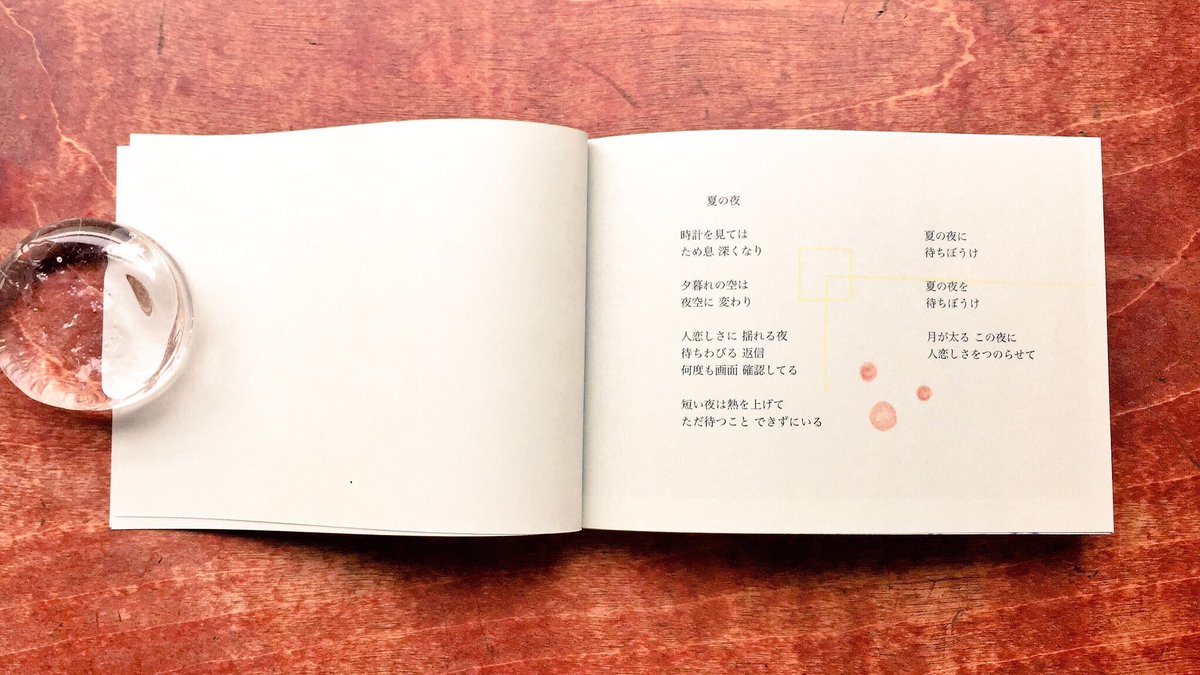 夏の夜
時計を見ては
ため息 深くなり
夕暮れの空は
夜空に 変わり
人恋しさに 揺れる夜
待ちわびる 返信
何度も画面 確認してる
短い夜は熱を上げて
ただ待つこと できずにいる
夏の夜に
待ちぼうけ
夏の夜を
待ちぼうけ
月が太る この夜に
人恋しさをつのらせて